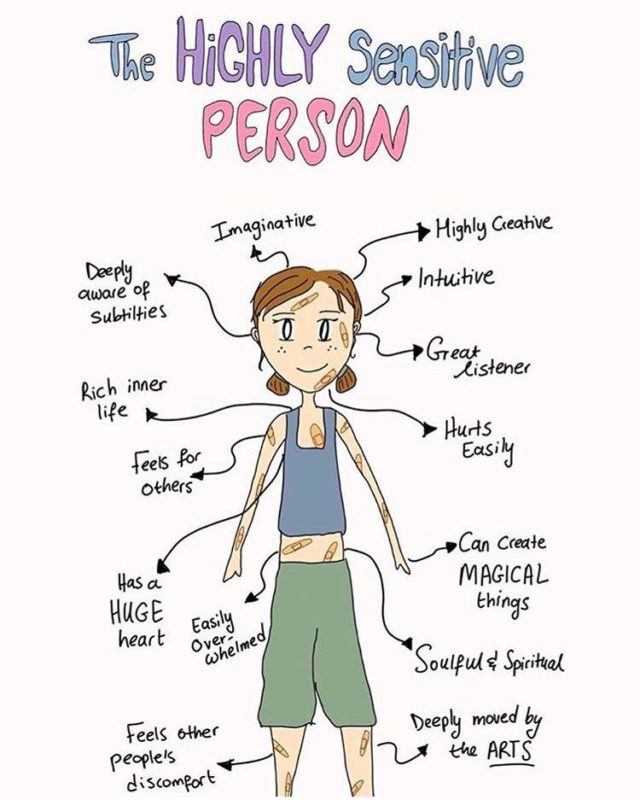 The HiGHLY Sensitive
PERSON
Imaginative
Highly Creative
Deeply
aware of
subtilties
Intuitive
Great
listener
Rich inner
life
Hurts
Easily
Feels for
others
Can Create
MAGICAL
things
Has a
HUGE
heart
Easily
Over-
whelmed
Soulful & Spiritual
Feels other
people's
discomfort
Deeply moved by
the ARTS